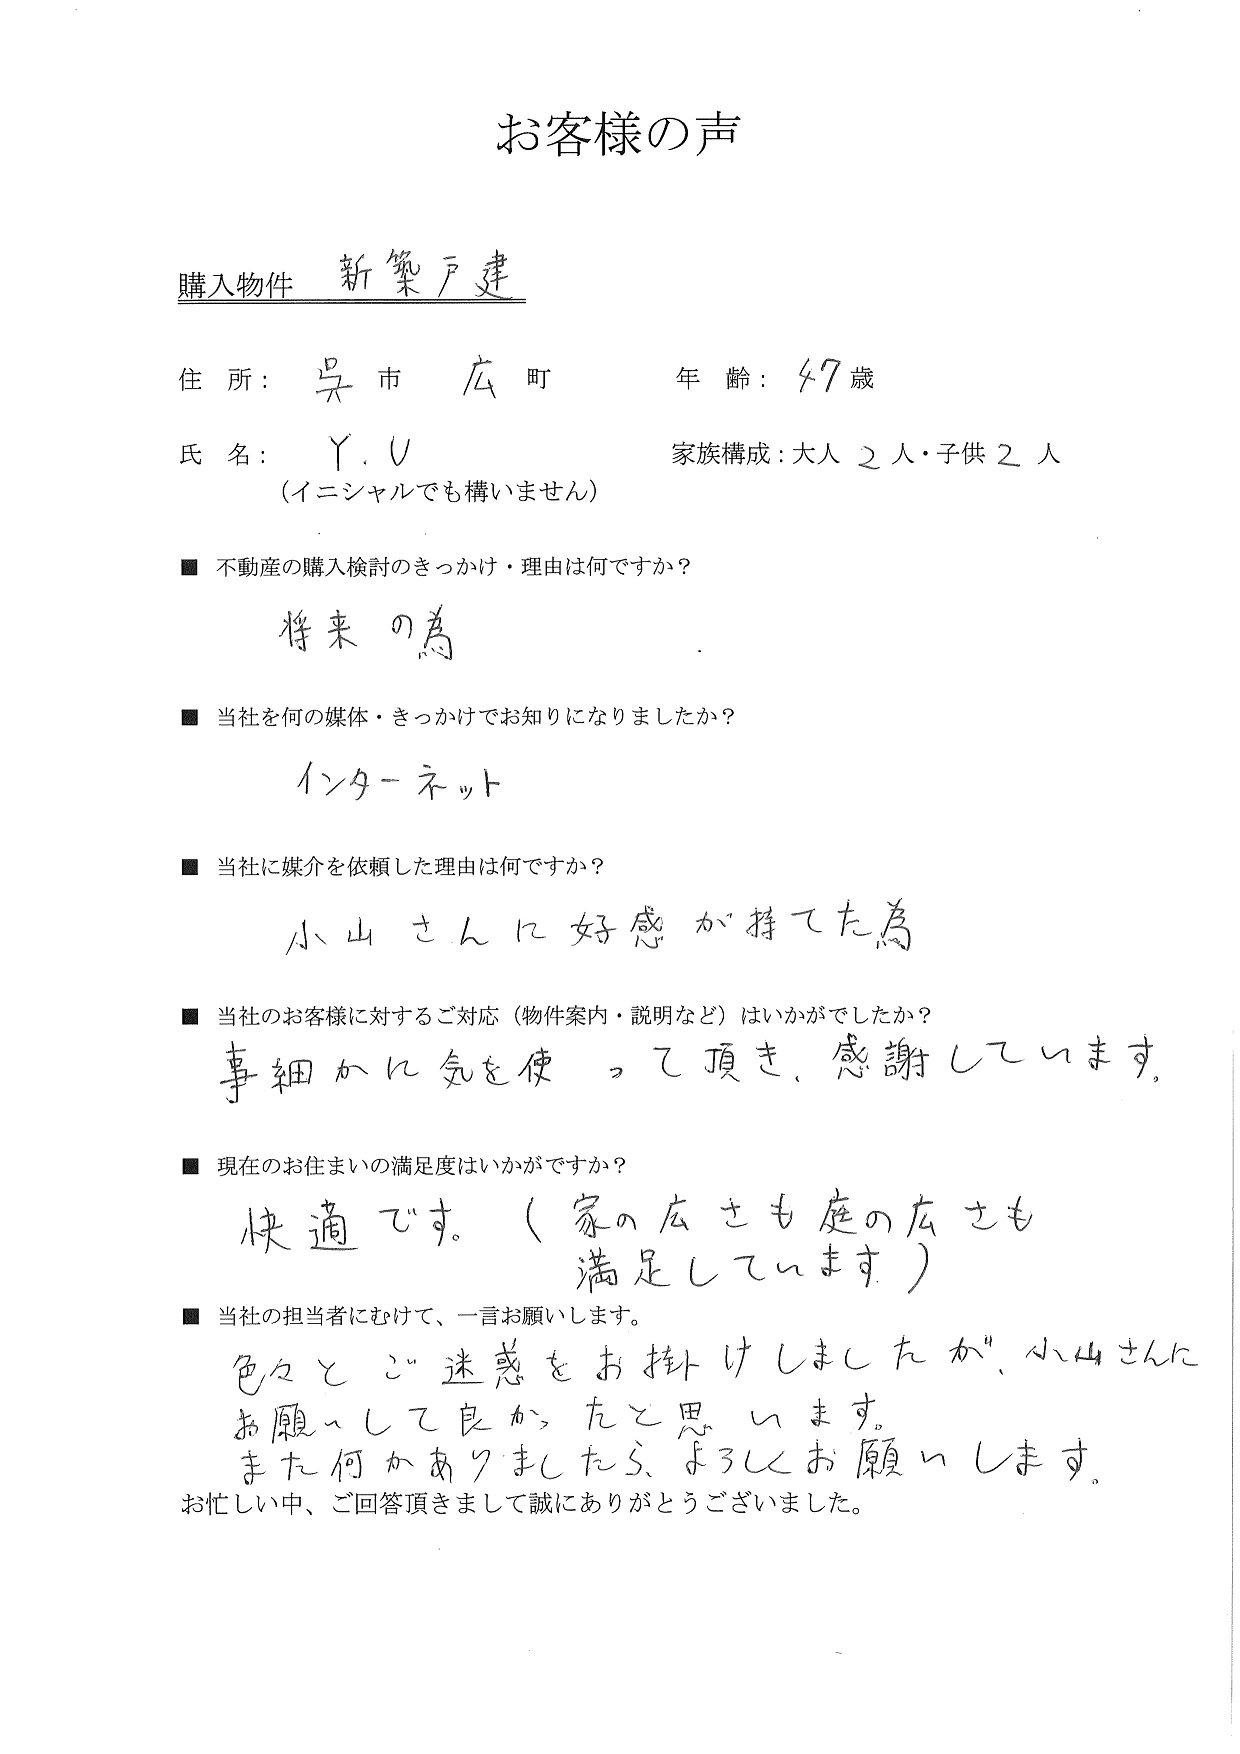 お客様の声
購入物件 新築戸建
住 所： 呉 市 広 町 年 齢： 47 歳
氏 名： Y.U 家族構成：大人 2 人・子供 2 人
（イニシャルでも構いません）
■ 不動産の購入検討のきっかけ・理由は何ですか？
将来の為
■ 当社を何の媒体・きっかけでお知りになりましたか？
インターネット
■ 当社に媒介を依頼した理由は何ですか？
小山さんに好感が持てた為
■ 当社のお客様に対するご対応（物件案内・説明など）はいかがでしたか？
事細かに気を使って頂き、感謝しています。
■ 現在のお住まいの満足度はいかがですか？
快適です。（家の広さも庭の広さも
満足しています）
■ 当社の担当者にむけて、一言お願いします。
色々とご迷惑をお掛けしましたが、小山さんに
お願いして良かったと思います。
また何かありましたら、よろしくお願いします。
お忙しい中、ご回答頂きまして誠にありがとうございました。